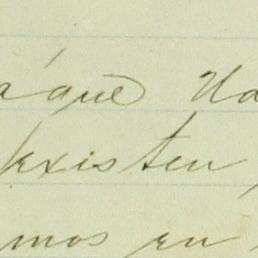 a'que Ud
existen,
mos en